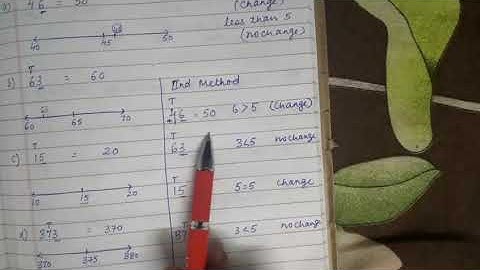 a) 46 = 50
(Change)
less than 5
(no change)
40 45 50
T
b) 63 = 60
60 65 70
T
c) 15 = 20
10 15 20
T
d) 373 = 370
370 375 380
IInd Method
T
46 = 50 6>5 (Change)
T
63 3<5 no change
T
15 5=5 change
3<5 no change